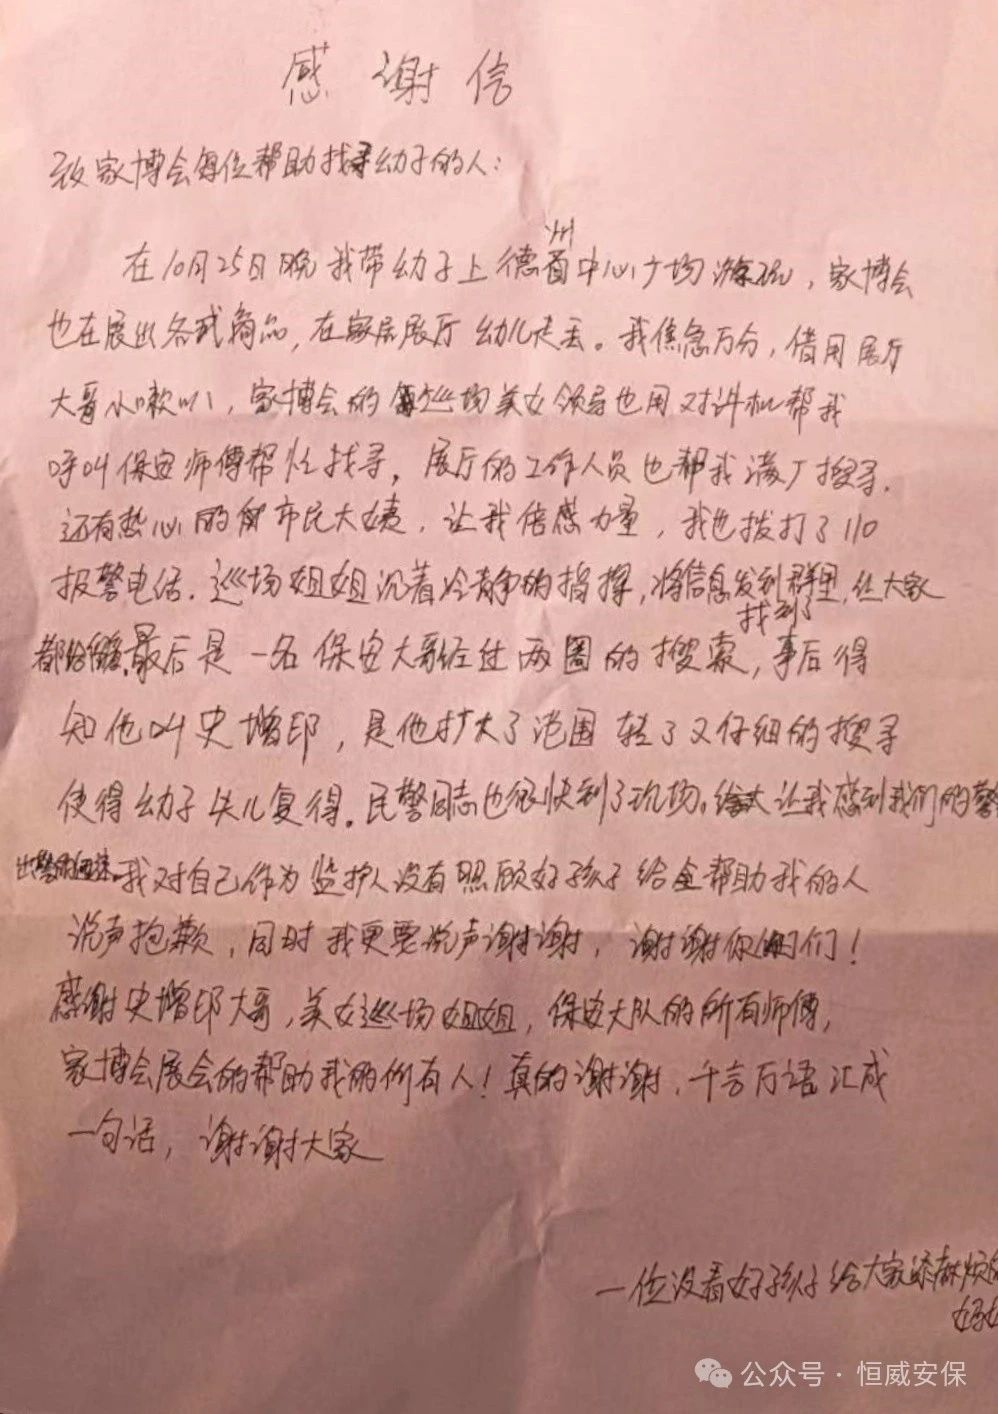 感谢信
致家博会每位帮助找寻幼子的人：
在10月25日晚我带幼子上德州中心广场游玩，家博会
也在展出各式商品，在家居展厅幼儿走丢。我焦急万分，借用展厅
大哥小喇叭，家博会的巡场美女领导也用对讲机帮我
呼叫保安师傅帮忙找寻，展厅的工作人员也帮我满厂搜寻，
还有热心的市民大姨，让我倍感力量，我也拨打了110
报警电话。巡场姐姐沉着冷静的指挥，将信息发到群里，让大家
都给留意，最后是一名保安大哥经过两圈的搜索，找到了事后得
知他叫史增印，是他扩大了范围转了又仔细的搜寻
使得幼子失儿复得。民警同志也很快到了现场。让我感到我们的警
出警的迅速。我对自己作为监护人没有照顾好孩子给全帮助我的人
说声抱歉，同时我更要说声谢谢，谢谢你们！
感谢史增印大哥，美女巡场姐姐，保安大队的所有师傅，
家博会展会的帮助我的所有人！真的谢谢，千言万语汇成
一句话，谢谢大家
一位没看好孩子给大家添麻烦的
妈妈
公众号·恒威安保